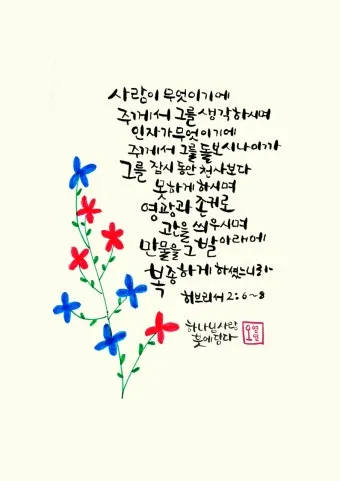 사람이 무엇이기에
주께서 그를 생각하시며
인자가 무엇이기에
주께서 그를 돌보시나이까
그를 잠시 동안 천사보다
못하게 하시며
영광과 존귀로
관을 씌우시며
만물을 그 발 아래에
복종하게 하셨느니라
히브리서 2:6~8
하나님사랑
붓에 담다